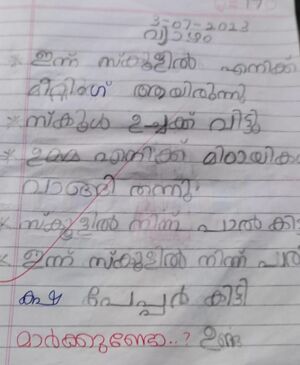 3-07-2023
വ്യാഴം
* ഇന്ന് സ്കൂളിൽ എനിക്ക്
മീറ്റിംഗ് ആയിരുന്നു
* സ്കൂൾ ഉച്ചക്ക് വിട്ടു
* ഉമ്മ എനിക്ക് മിഠായികൾ
വാങ്ങി തന്നു
* സ്കൂളിൽ നിന്ന് പാൽ കി
* ഇന്ന് സ്കൂളിൽ നിന്ന്
പേപ്പർ കിട്ടി
മാർക്കുണ്ടോ..? ഉണ്ട്